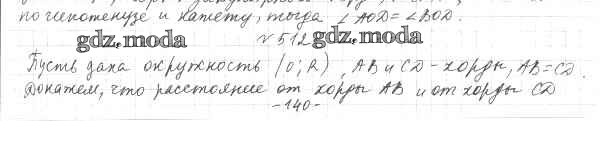 по гипотенузе и катету, тогда ∠AOD = ∠BOD.
gdz.moda
№ 512
gdz.moda
Пусть дана окружность (O; R), AB и CD - хорды, AB = CD.
Докажем, что расстояние от хорды AB и от хорды CD
-140-